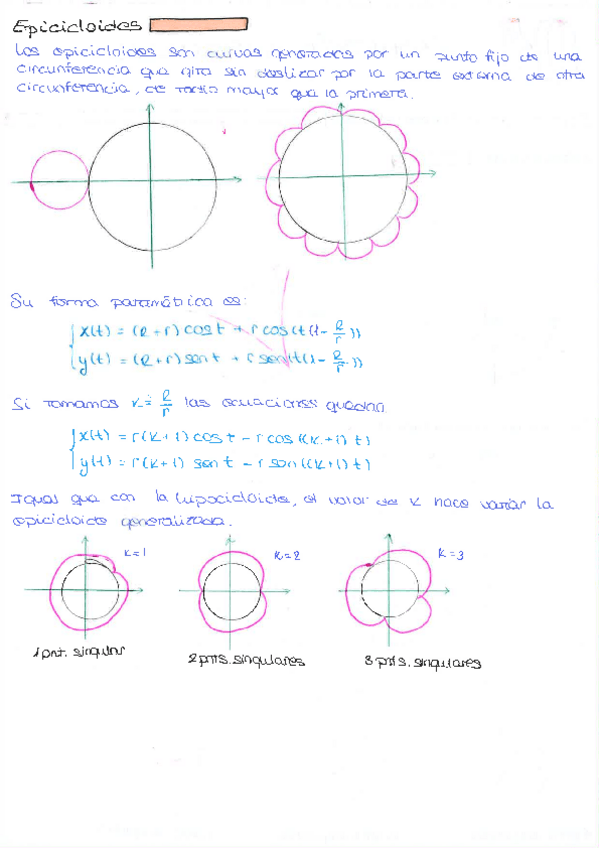 Epicicloides
Los epicicloides son curvas generadas por un punto fijo de una
circunferencia que gira sin deslizar por la parte externa de otra
circunferencia, de radio mayor que la primera.
Su forma paramétrica es:
x(t) = (R+r) cos t + r cos (t(1 - R/r))
y(t) = (R+r) sen t + r sen (t(1 - R/r))
Si tomamos k = R/r las ecuaciones quedan:
x(t) = r(k+1) cos t - r cos ((k+1) t)
y(t) = r(k+1) sen t - r sen ((k+1) t)
Igual que con la hipocicloide, el valor de k hace variar la
epicicloide generalizada.
k=1 k=2 k=3
1 pnt. singular 2 pnts. singulares 3 pnts. singulares